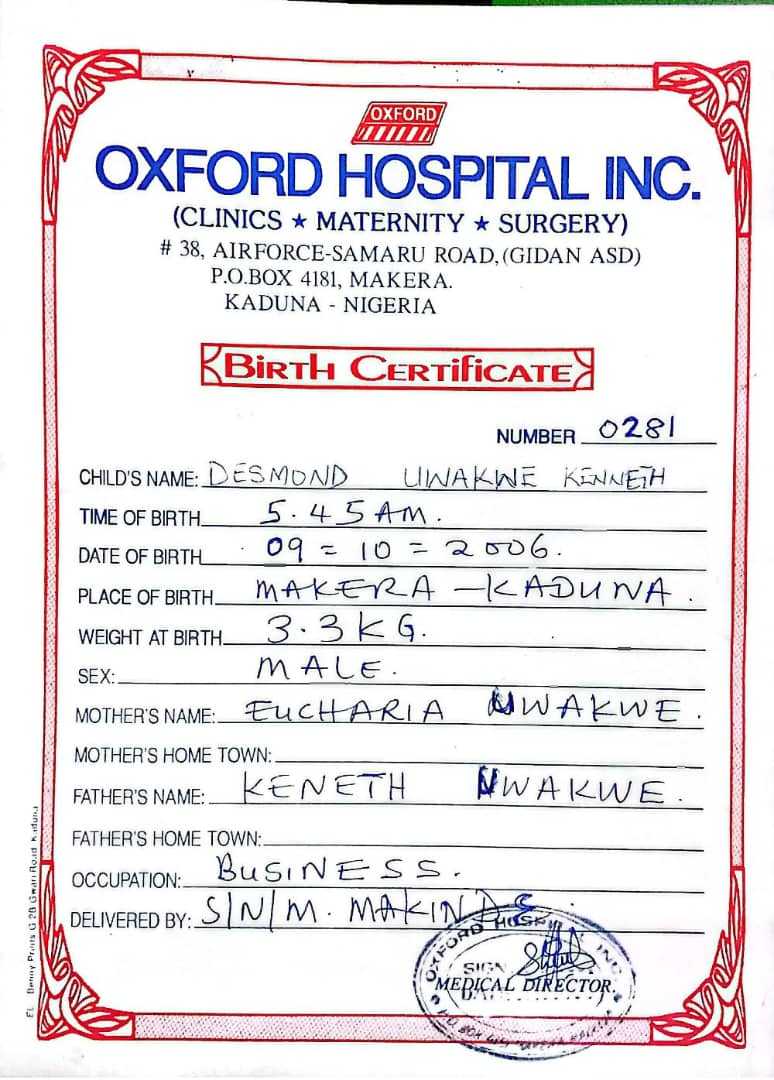 OXFORD
OXFORD HOSPITAL INC.
(CLINICS ★ MATERNITY ★ SURGERY)
# 38, AIRFORCE-SAMARU ROAD, (GIDAN ASD)
P.O.BOX 4181, MAKERA.
KADUNA - NIGERIA
BIRTH CERTIFICATE
NUMBER 0281
CHILD'S NAME: DESMOND UWAKWE KENNETH
TIME OF BIRTH 5.45 AM.
DATE OF BIRTH 09 = 10 = 2006.
PLACE OF BIRTH MAKERA - KADUNA.
WEIGHT AT BIRTH 3.3KG.
SEX: MALE.
MOTHER'S NAME: EUCHARIA UWAKWE.
MOTHER'S HOME TOWN:
FATHER'S NAME: KENETH UWAKWE.
FATHER'S HOME TOWN:
OCCUPATION: BUSINESS.
DELIVERED BY: S/N/M. MAKINDE
OXFORD HOSPITAL INC.
SIGN
MEDICAL DIRECTOR.